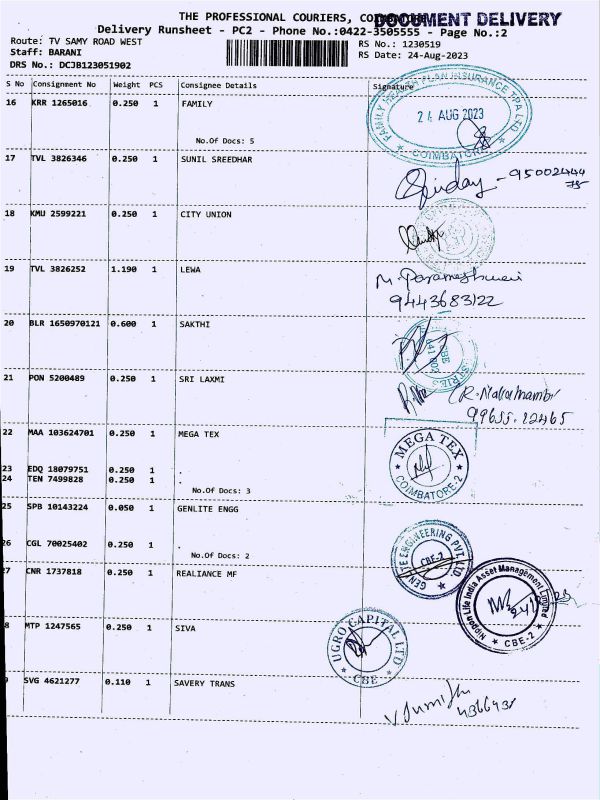 THE PROFESSIONAL COURIERS,
DOCUMENT DELIVERY
Delivery Runsheet - PC2 - Phone No.:0422-3505555 - Page No.:2
Route: TV SAMY ROAD WEST
RS No.: 1230519
Staff: BARANI
RS Date: 24-Aug-2023
DRS No.: DCJB123051902
S No Consignment No Weight PCS Consignee Details Signature
16 KRR 1265016 0.250 1 FAMILY
FAMILY HEALTH PLAN INSURANCE TPA LTD
24 AUG 2023
COIMBATORE
No.Of Docs: 5
17 TVL 3826346 0.250 1 SUNIL SREEDHAR
95002444
75
18 KMU 2599221 0.250 1 CITY UNION
19 TVL 3826252 1.190 1 LEWA
M. Parameshwari
9443683122
20 BLR 1650970121 0.600 1 SAKTHI
21 PON 5200489 0.250 1 SRI LAXMI
99655.12465
22 MAA 103624701 0.250 1 MEGA TEX
MEGA TEX
COIMBATORE-2
23 EDQ 18079751 0.250 1 .
24 TEN 7499828 0.250 1 .
No.Of Docs: 3
25 SPB 10143224 0.050 1 GENLITE ENGG
GENLITE ENGINEERING PVT LTD
CBE-2
26 CGL 70025402 0.250 1 .
No.Of Docs: 2
27 CNR 1737818 0.250 1 REALIANCE MF
Nippon Life India Asset Management Limited
CBE-2
8 MTP 1247565 0.250 1 SIVA
UGRO CAPITAL LTD
CBE
SVG 4621277 0.110 1 SAVERY TRANS